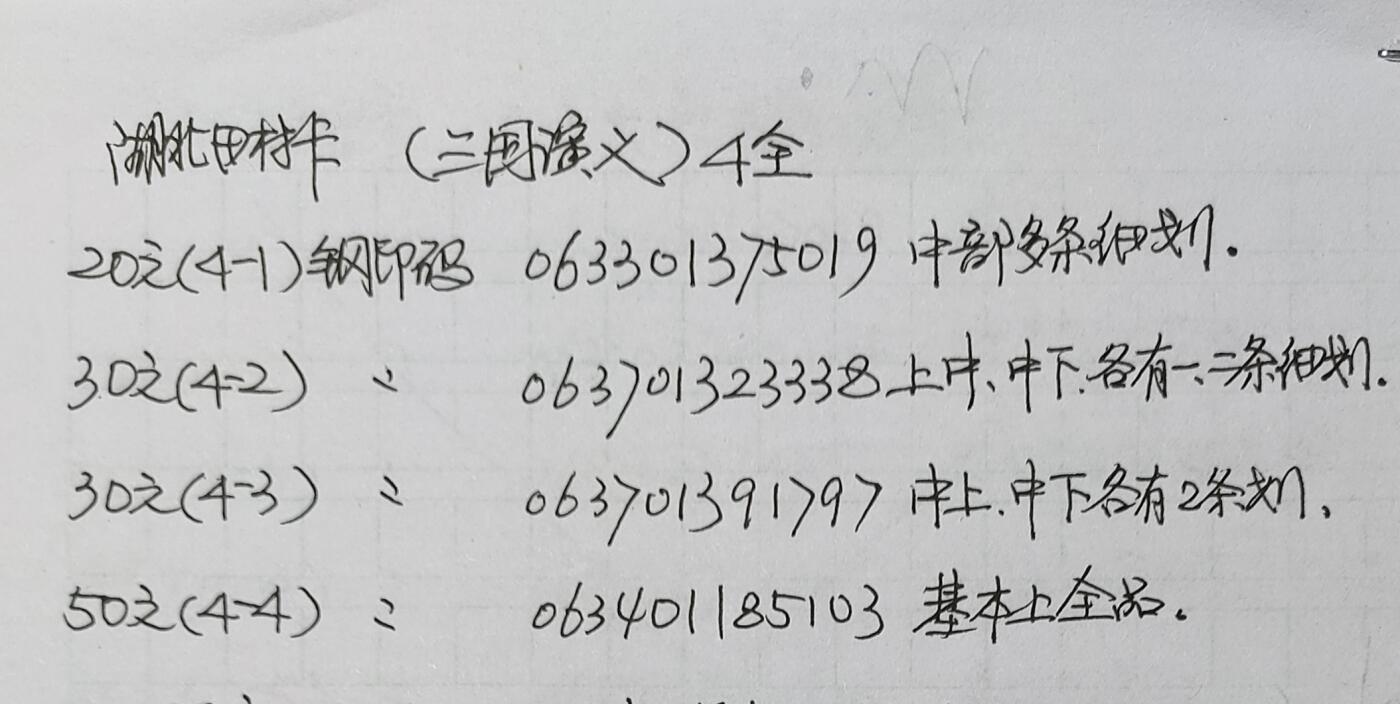 湖北田村卡 (三国演义) 4全
20元(4-1)钢印码 063301375019 中部多条细划.
30元(4-2) 〃 0637013233338上中、中下.各有一、二条细划.
30元(4-3) 〃 063701391797 中上.中下各有2条划.
50元(4-4) 〃 063401185103 基本上全品.